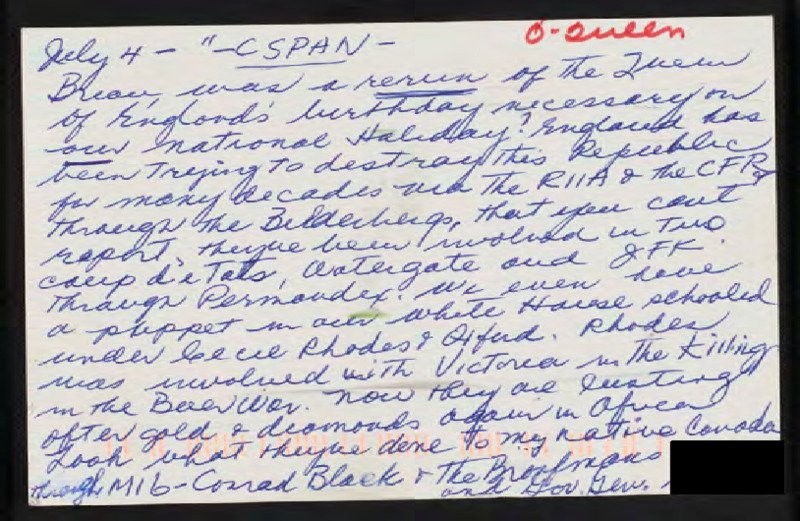 O-Queen
July 4 - "-CSPAN-
Brian, was a rerun of the Queen
of England's birthday necessary on
our National Holiday? England has
been trying to destroy this Republic
for many decades via the RIIA & the CFR &
through the Bilderbergs, that you cant
report, theyve been involved in two
coup d'e Tats, Watergate and JFK
through Permandex. We even have
a puppet in our White House schooled
under Cecil Rhodes & Oxford. Rhodes
was involved with Victoria in the Killing
in the Boer War. Now they are lusting
after gold & diamonds again in Africa
Look what theyve done to my native Canada
through MI6-Conrad Black & The Bronfmans
and Gov. Gen.